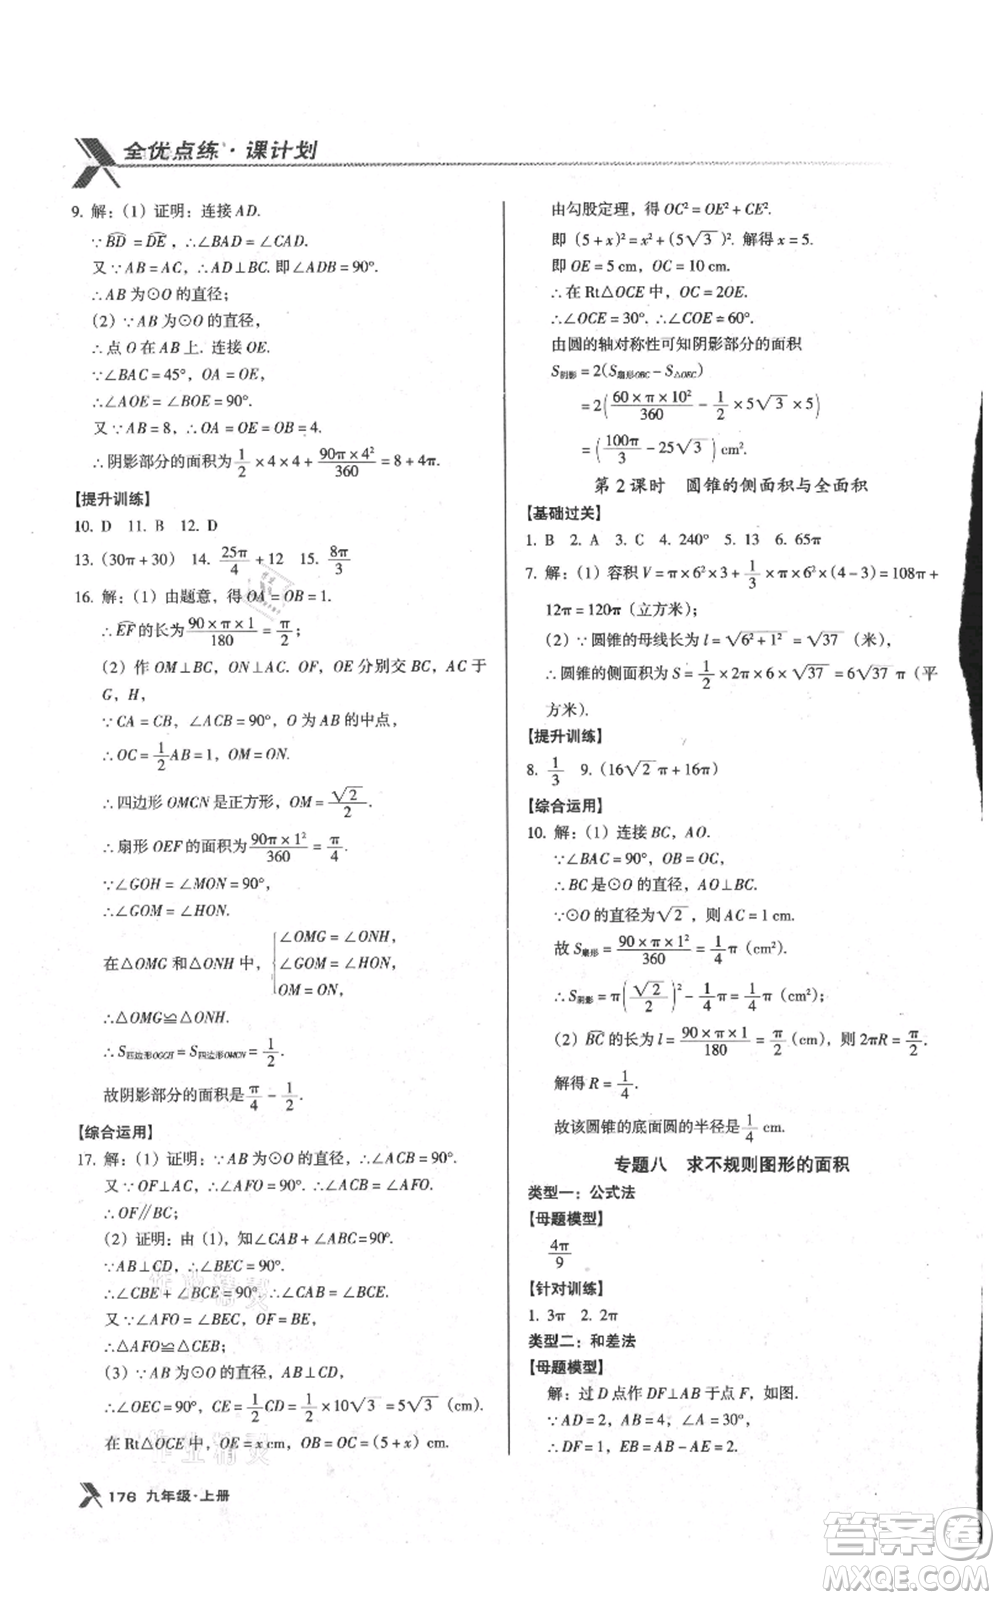 全优点练·课计划
9. 解：(1) 证明：连接 AD.
∵ BD⌒ = DE⌒，∴∠BAD = ∠CAD.
又∵AB = AC，∴AD⊥BC. 即∠ADB = 90°.
∴AB 为⊙O 的直径；
(2) ∵AB 为⊙O 的直径，
∴点 O 在 AB 上. 连接 OE.
∵∠BAC = 45°，OA = OE，
∴∠AOE = ∠BOE = 90°.
又∵AB = 8，∴OA = OE = OB = 4.
∴阴影部分的面积为 1/2 × 4 × 4 + 90π × 4²/360 = 8 + 4π.
【提升训练】
10. D 11. B 12. D
13. (30π + 30) 14. 25π/4 + 12 15. 8π/3
16. 解：(1) 由题意，得 OA = OB = 1.
∴EF⌒ 的长为 90 × π × 1/180 = π/2；
(2) 作 OM⊥BC，ON⊥AC. OF，OE 分别交 BC，AC 于
G，H，
∵CA = CB，∠ACB = 90°，O 为 AB 的中点，
∴OC = 1/2 AB = 1，OM = ON.
∴四边形 OMCN 是正方形，OM = √2/2.
∴扇形 OEF 的面积为 90π × 1²/360 = π/4.
∵∠GOH = ∠MON = 90°，
∴∠GOM = ∠HON.
在△OMG 和△ONH 中，{∠OMG = ∠ONH,
∠GOM = ∠HON,
OM = ON,
∴△OMG≌△ONH.
∴S四边形OGCH = S四边形OMCN = 1/2.
故阴影部分的面积是 π/4 - 1/2.
【综合运用】
17. 解：(1) 证明：∵AB 为⊙O 的直径，∴∠ACB = 90°.
又∵OF⊥AC，∴∠AFO = 90°. ∴∠ACB = ∠AFO.
∴OF∥BC；
(2) 证明：由 (1)，知∠CAB + ∠ABC = 90°.
∵AB⊥CD，∴∠BEC = 90°.
∴∠CBE + ∠BCE = 90°. ∴∠BCE = ∠CAB.
又∵∠AFO = ∠BEC，OF = BE，
∴△AFO≌△CEB；
(3) ∵AB 为⊙O 的直径，AB⊥CD，
∴∠OEC = 90°，CE = 1/2 CD = 1/2 × 10√3 = 5√3 (cm).
在 Rt△OCE 中，OE = x cm，OB = OC = (5 + x) cm.
由勾股定理，得 OC² = OE² + CE².
即 (5 + x)² = x² + (5√3)². 解得 x = 5.
即 OE = 5 cm，OC = 10 cm.
∴在 Rt△OCE 中，OC = 2OE.
∴∠OCE = 30°，∠COE = 60°.
由圆的轴对称性可知阴影部分的面积
S阴影 = 2(S扇形OBC - S△OEC)
= 2(60 × π × 10²/360 - 1/2 × 5√3 × 5)
= (100π/3 - 25√3) cm².
第 2 课时 圆锥的侧面积与全面积
【基础过关】
1. B 2. A 3. C 4. 240° 5. 13 6. 65π
7. 解：(1) 容积 V = π × 6² × 3 + 1/3 × π × 6² × (4 - 3) = 108π +
12π = 120π (立方米)；
(2) ∵圆锥的母线长为 l = √(6² + 1²) = √37 (米)，
∴圆锥的侧面积为 S = 1/2 × 2π × 6 × √37 = 6√37 π (平
方米).
【提升训练】
8. 1/3 9. (16√2 π + 16π)
【综合运用】
10. 解：(1) 连接 BC，AO.
∵∠BAC = 90°，OB = OC，
∴BC 是⊙O 的直径，AO⊥BC.
∵⊙O 的直径为 √2，则 AC = 1 cm.
故 S扇形 = 90 × π × 1²/360 = 1/4 π (cm²).
∴S阴影 = π(√2/2)² - 1/4 π = 1/4 π (cm²)；
(2) BC⌒ 的长为 l = 90 × π × 1/180 = π/2 (cm)，则 2πR = π/2.
解得 R = 1/4.
故该圆锥的底面圆的半径是 1/4 cm.
专题八 求不规则图形的面积
类型一：公式法
【母题模型】
4π/9
【针对训练】
1. 3π 2. 2π
类型二：和差法
【母题模型】
解：过 D 点作 DF⊥AB 于点 F，如图.
∵AD = 2，AB = 4，∠A = 30°，
∴DF = 1，EB = AB - AE = 2.
176 九年级·上册
答案卷
MXQE.COM